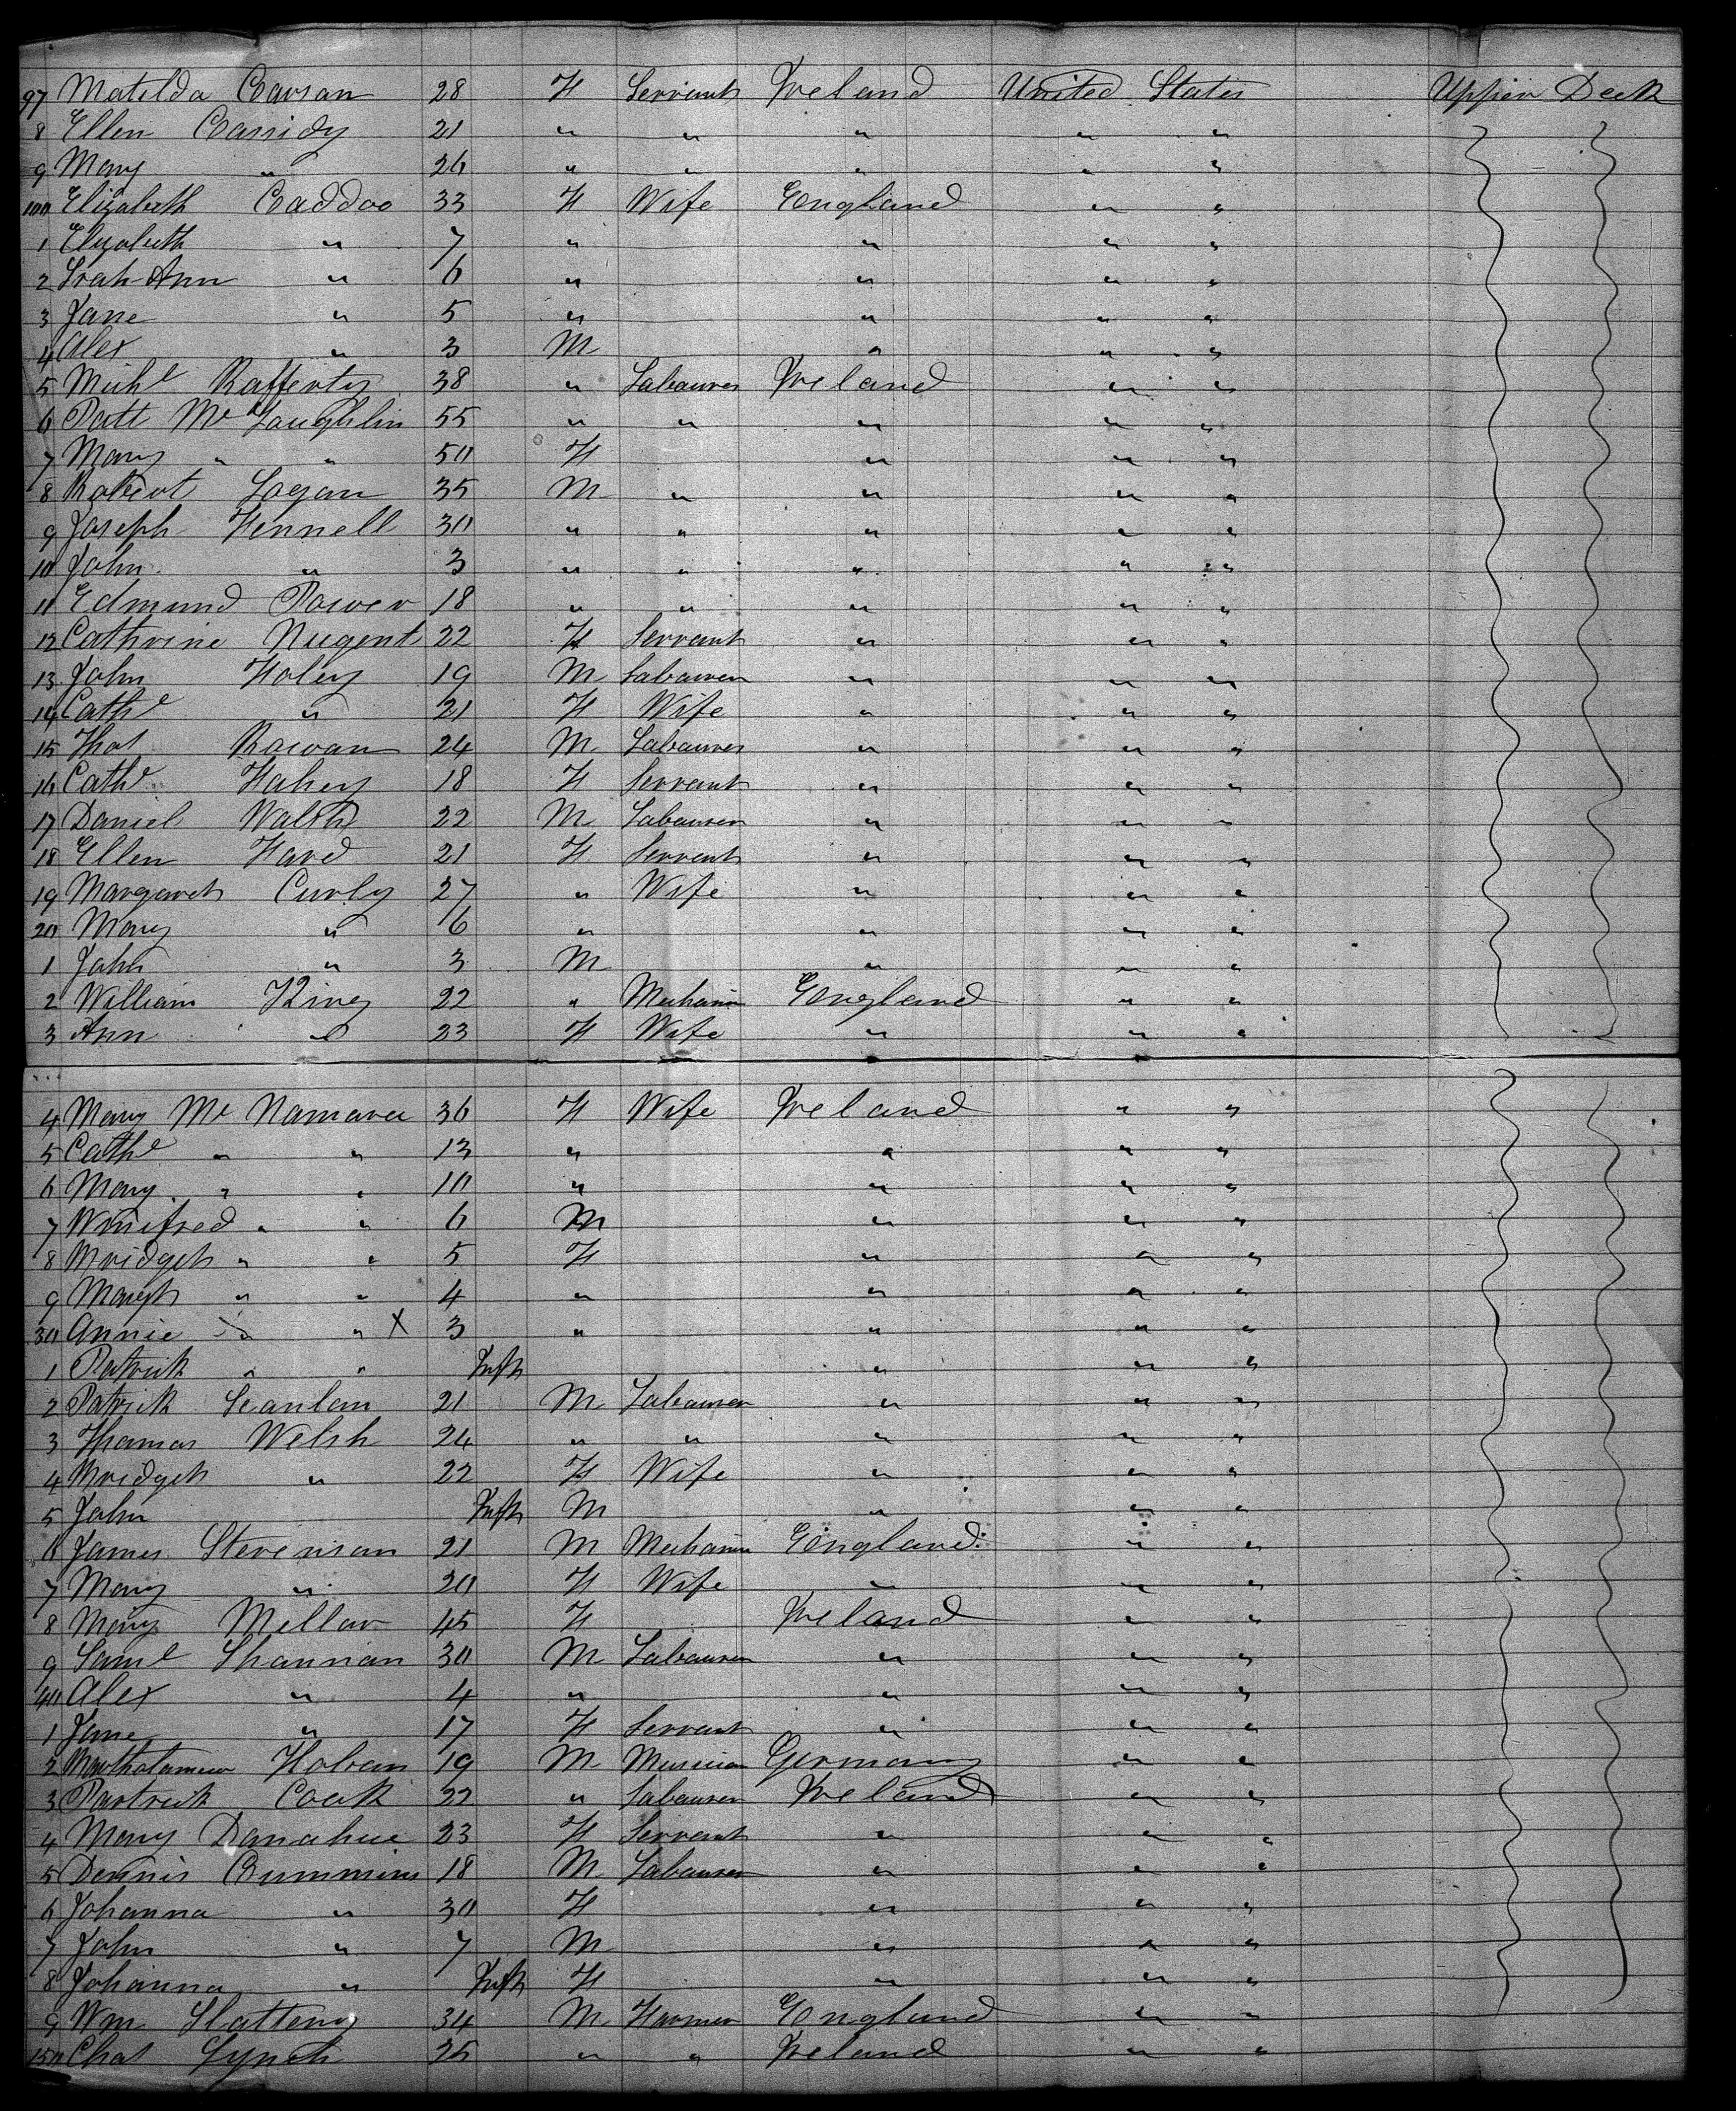 97 Matilda Carson 28 F Servant Ireland United States Upper Deck
8 Ellen Cassidy 21 " " " " "
9 Mary " 26 " " " " "
100 Elizabeth Caddoo 33 F Wife England " "
1 Elizabeth " 7 " " " "
2 Srah Ann " 6 " " " "
3 Jane " 5 " " " "
4 Alex " 3 M " " "
5 Michl Rafferty 38 " Labourer Ireland " "
6 Patt Mc Laughlin 55 " " " " "
7 Mary " " 50 F " " "
8 Robert Logan 35 M " " " "
9 Joseph Fennell 30 " " " " "
10 John " 3 " " " " "
11 Edmund Power 18 " " " " "
12 Cathrine Nugent 22 F Servant " " "
13 John Foley 19 M Labourer " " "
14 Cathe " 21 F Wife " " "
15 Thos Rowan 24 M Labourer " " "
16 Cathe Fahey 18 F Servant " " "
17 Daniel Walsh 22 M Labourer " " "
18 Ellen Ford 21 F Servant " " "
19 Margaret Curly 27 " Wife " " "
20 Mary " 6 " " " "
1 John " 3 M " " "
2 William King 22 " Mechanic England " "
3 Ann " 23 F Wife " " "
4 Mary Mc Namara 36 F Wife Ireland " "
5 Cathe " " 13 " " " "
6 Mary " " 10 " " " "
7 Winifred " " 6 M " " "
8 Bridget " " 5 F " " "
9 Margt " " 4 " " " "
30 Annie " " X 3 " " " "
1 Patrick " " Inft " " "
2 Patrick Scanlan 21 M Labourer " " "
3 Thomas Welsh 24 " " " " "
4 Bridget " 22 F Wife " " "
5 John Inft M " " "
6 James Stevenson 21 M Mechanic England " "
7 Mary " 20 F Wife " " "
8 Mary Millar 45 F Ireland " "
9 Saml Shannan 30 M Labourer " " "
40 Alex " 4 " " " "
1 Jane " 17 F Servant " " "
2 Bartholamew Hoban 19 M Musician Germany " "
3 Partrick Cook 22 " Labourer Ireland " "
4 Mary Donahue 23 F Servant " " "
5 Dennis Cummins 18 M Labourer " " "
6 Johanna " 30 F " " "
7 John " 7 M " " "
8 Johanna " Inft F " " "
9 Wm Slattery 34 M Farmer England " "
150 Chas Lynch 25 " " Ireland " "